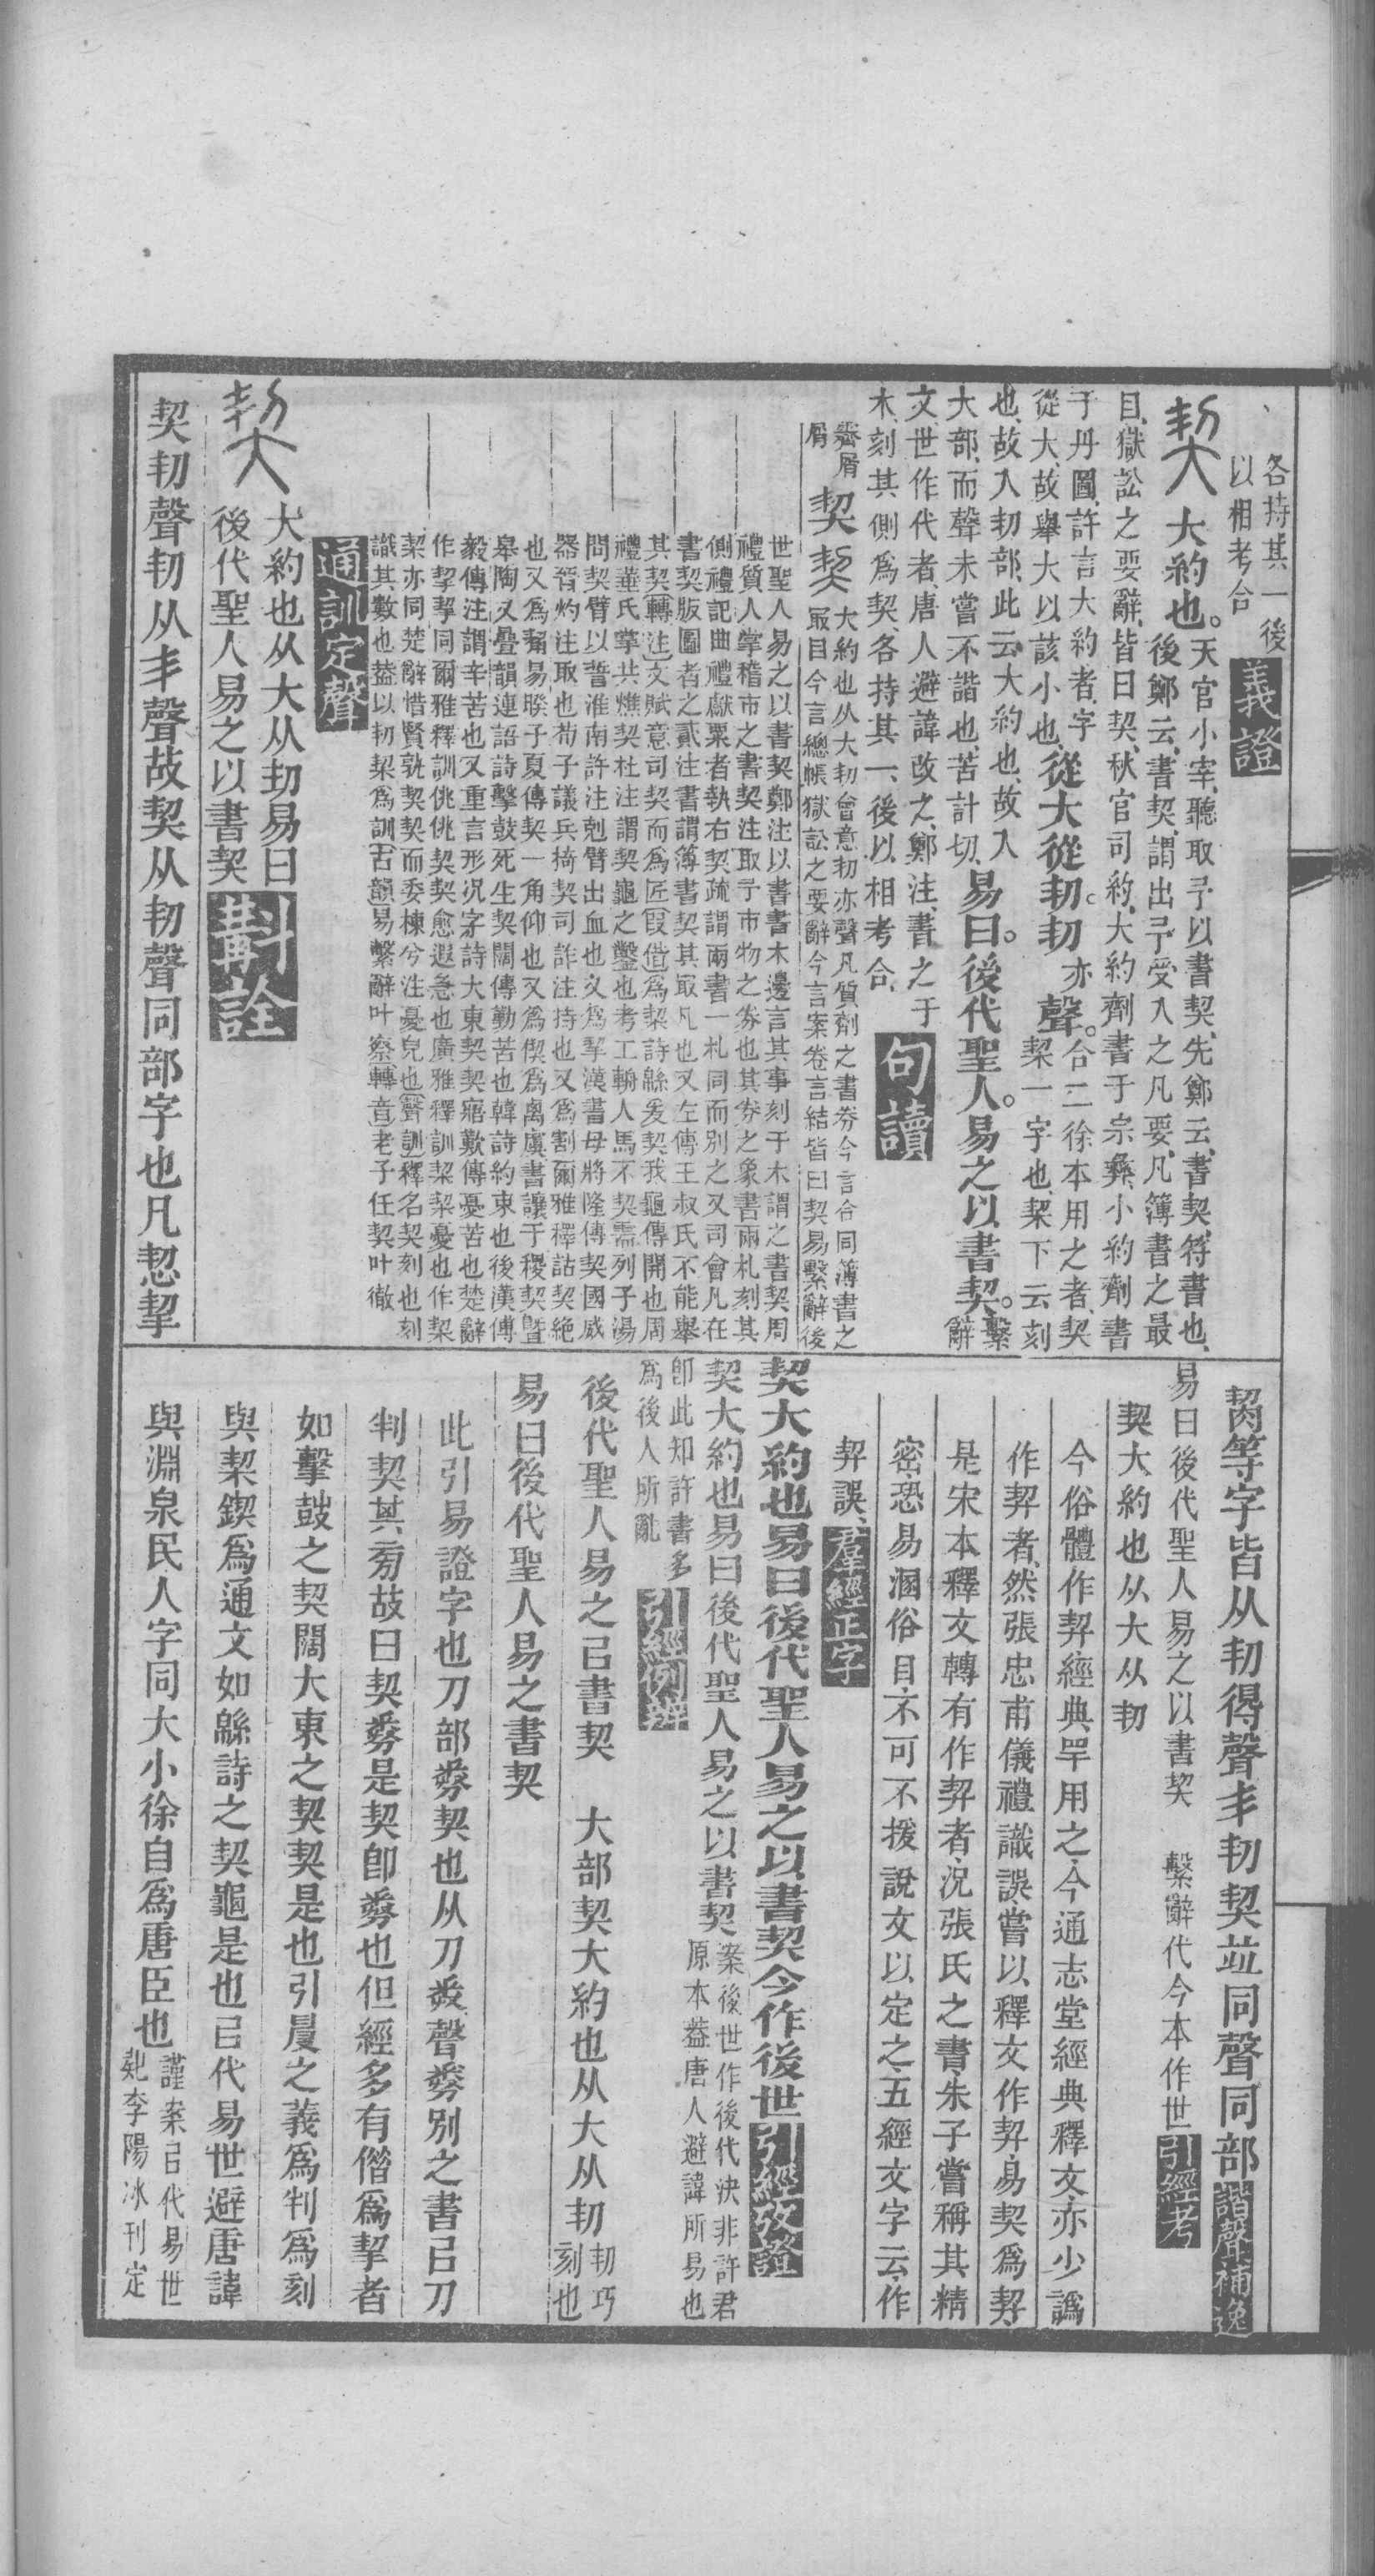 各持其一後
以相考合
義證
契 大約也。天官小宰、聽取予以書契、先鄭云、書契、符書也、
後鄭云、書契、謂出予受入之凡要、凡簿書之最
目、獄訟之要辭、皆曰契、秋官司約、大約劑書于宗彝、小約劑書
于丹圖、許言大約者、字
從大、故舉大以該小也、從大從㓞。㓞亦聲。合二徐本用之者、契
栔一字也、栔下云刻
也、故入㓞部、此云大約也、故入
大部、而聲未嘗不諧也、苦計切、易曰。後代聖人。易之以書契。繫
辭
文世作代者、唐人避諱改之、鄭注、書之于
木、刻其側為契、各持其一、後以相考合、
句讀
霽屑
屑
契 大約也从大㓞會意㓞亦聲凡質劑之書券今言合同簿書之
最目今言總帳獄訟之要辭今言案卷言結皆曰契易繫辭後
世聖人易之以書契鄭注以書書木邊言其事刻于木謂之書契周
禮質人掌稽市之書契注取予市物之券也其券之象書兩札刻其
側禮記曲禮獻粟者執右契疏謂兩書一札同而別之又司會凡在
書契版圖者之貳注書謂簿書契其取凡也又左傳王叔氏不能舉
其契轉注文賦意司契而為匠叚借為栔詩緜爰契我龜傳開也周
禮菙氏掌共燋契杜注謂契龜之鑿也考工輈人馬不契需列子湯
問契臂以誓淮南許注剋臂出血也又為挈漢書毋將隆傳契國威
器晉灼注取也荀子議兵掎契司詐注持也又為割爾雅釋詁契絕
也又為觢易睽子夏傳契一角仰也又為偰為禼虞書讓于稷契暨
皋陶又疊韻連語詩擊鼓死生契闊傳勤苦也韓詩約束也後漢傅
毅傳注謂辛苦也又重言形況字詩大東契契寤歎傳憂苦也楚辭
作挈挈同爾雅釋訓佻佻契契愈遐急也廣雅釋訓栔栔憂也作栔
栔亦同楚辭惜賢孰契契而委棟兮注憂皃也聲訓釋名契刻也刻
識其數也葢以㓞栔為訓古韻易繫辭叶察轉音老子任契叶徹
通訓定聲
契 大約也从大从㓞易曰
後代聖人易之以書契
斠詮
契㓞聲㓞从丯聲故契从㓞聲同部字也凡恝挈
等字皆从㓞得聲丯㓞契竝同聲同部諧聲補逸
易曰後代聖人易之以書契 繫辭代今本作世引經考
契大約也从大从㓞
今俗體作契經典罕用之、今通志堂經典釋文、亦少譌
作契者、然張忠甫儀禮識誤、嘗以釋文作契、易契為契、
是宋本釋文轉有作契者、況張氏之書、朱子嘗稱其精
密、恐易溷俗目、不可不援說文以定之、五經文字云、作
契誤、羣經正字
契大約也易曰後代聖人易之以書契今作後世引經攷證
契大約也易曰後代聖人易之以書契案後世作後代決非許君
原本葢唐人避諱所易也
卽此知許書多
為後人所亂
引經例辨
後代聖人易之㠯書契 大部契大約也从大从㓞㓞巧
刻也
易曰後代聖人易之書契
此引易證字也刀部券契也从刀𢍏聲券別之書㠯刀
判契其旁故曰契券是契卽券也但經多有偕為挈者
如擊鼓之契闊大東之契契是也引𡳐之義為判為刻
與栔鍥為通文如緜詩之契龜是也㠯代易世避唐諱
與淵泉民人字同大小徐自為唐臣也謹案㠯代易世
李陽冰刊定